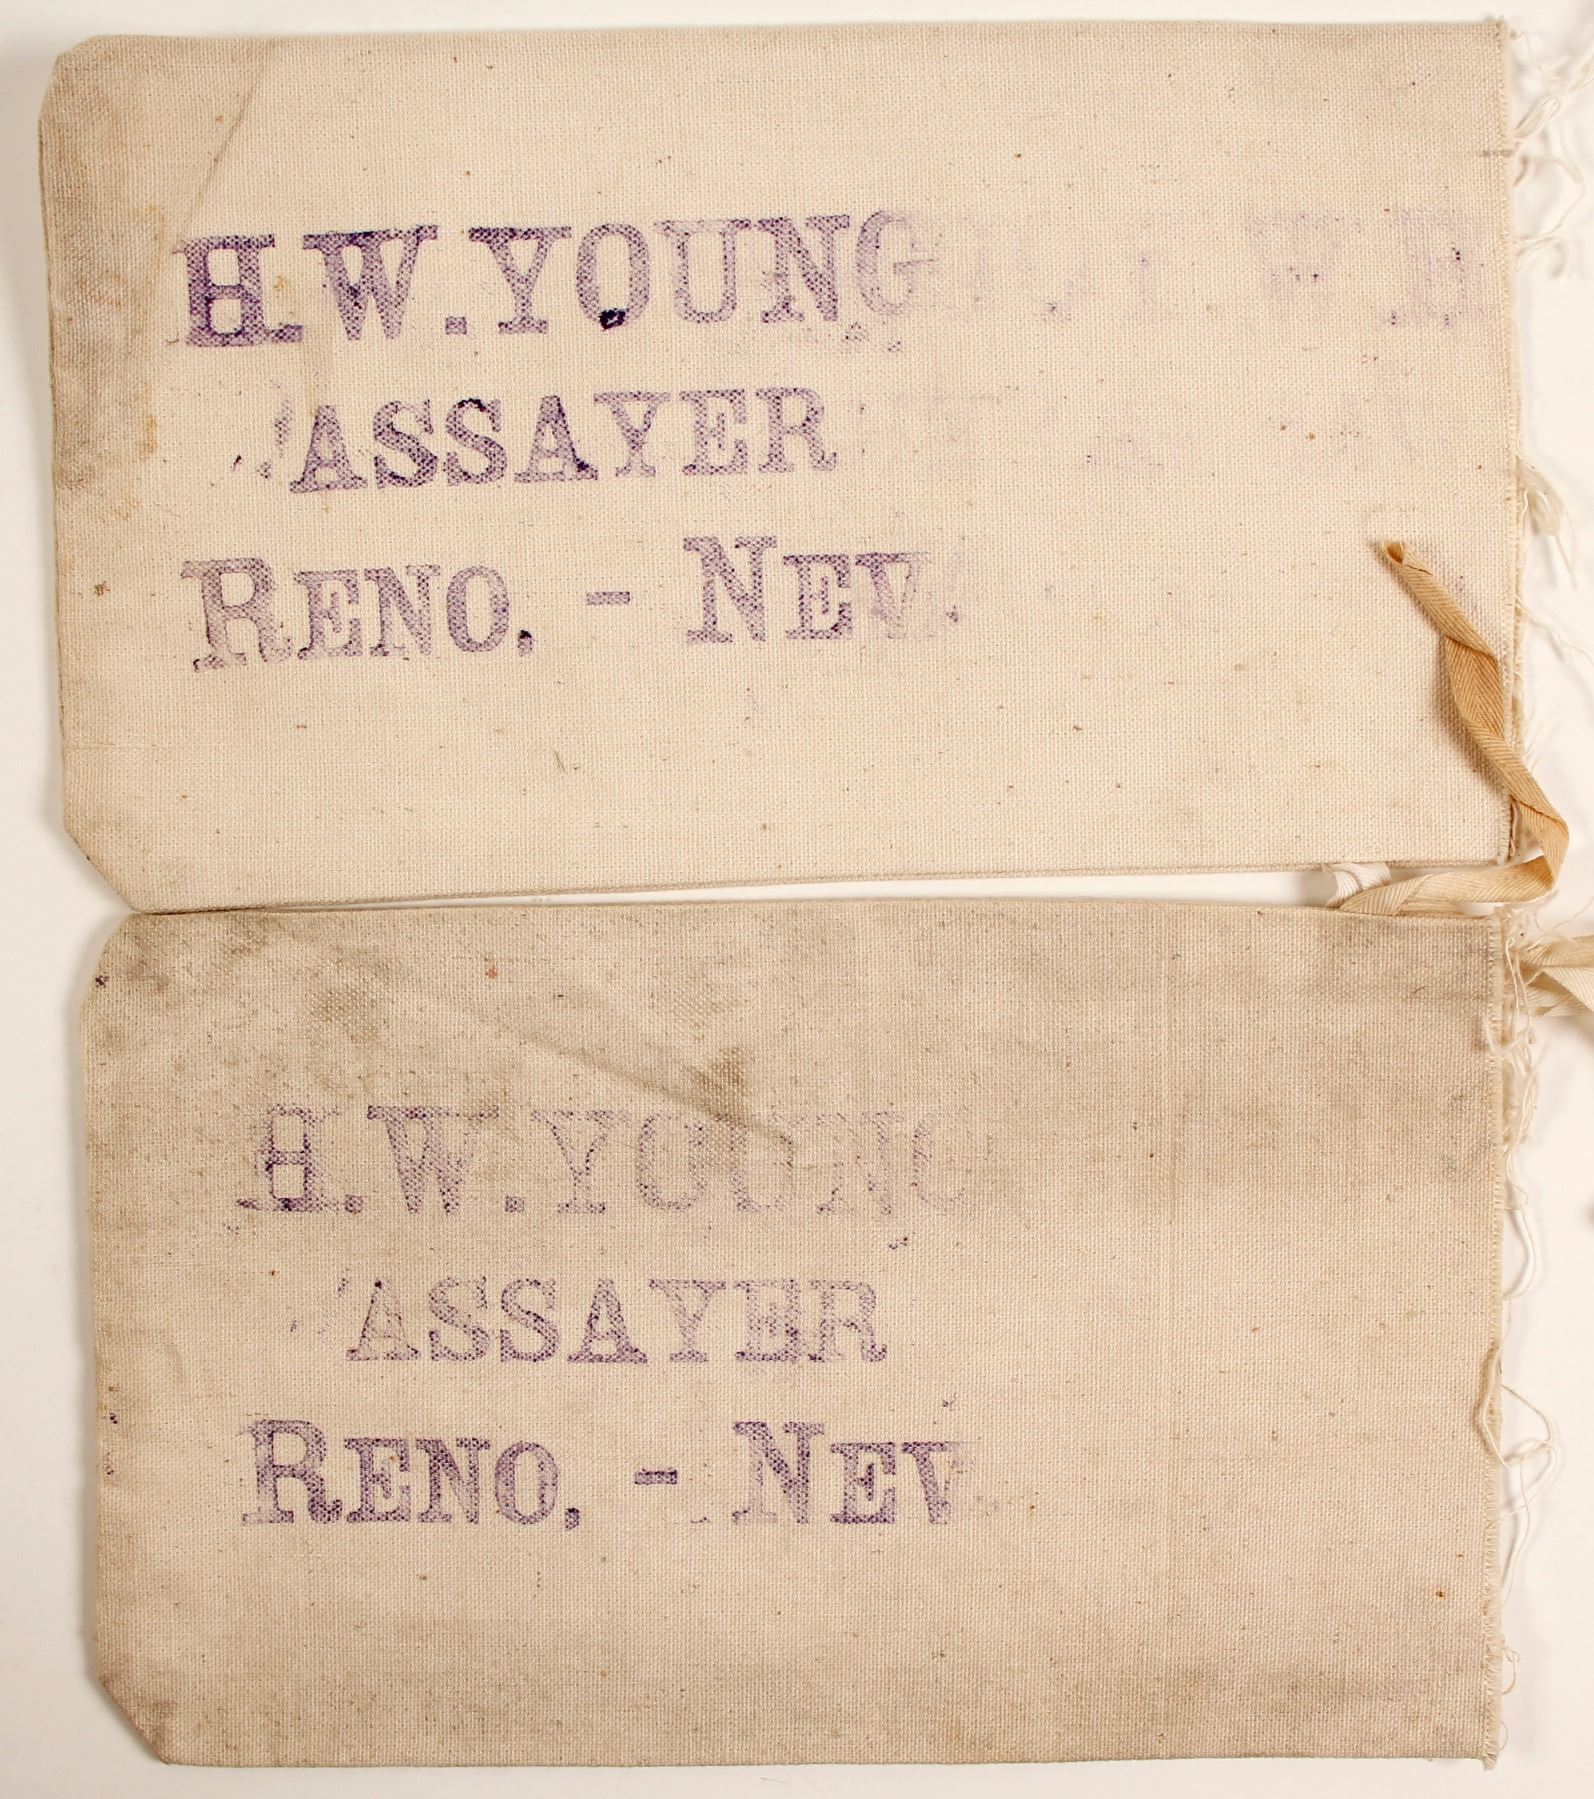 H.W.YOUNG
ASSAYER
RENO, - NEV.
H.W.YOUNG
ASSAYER
RENO, - NEV